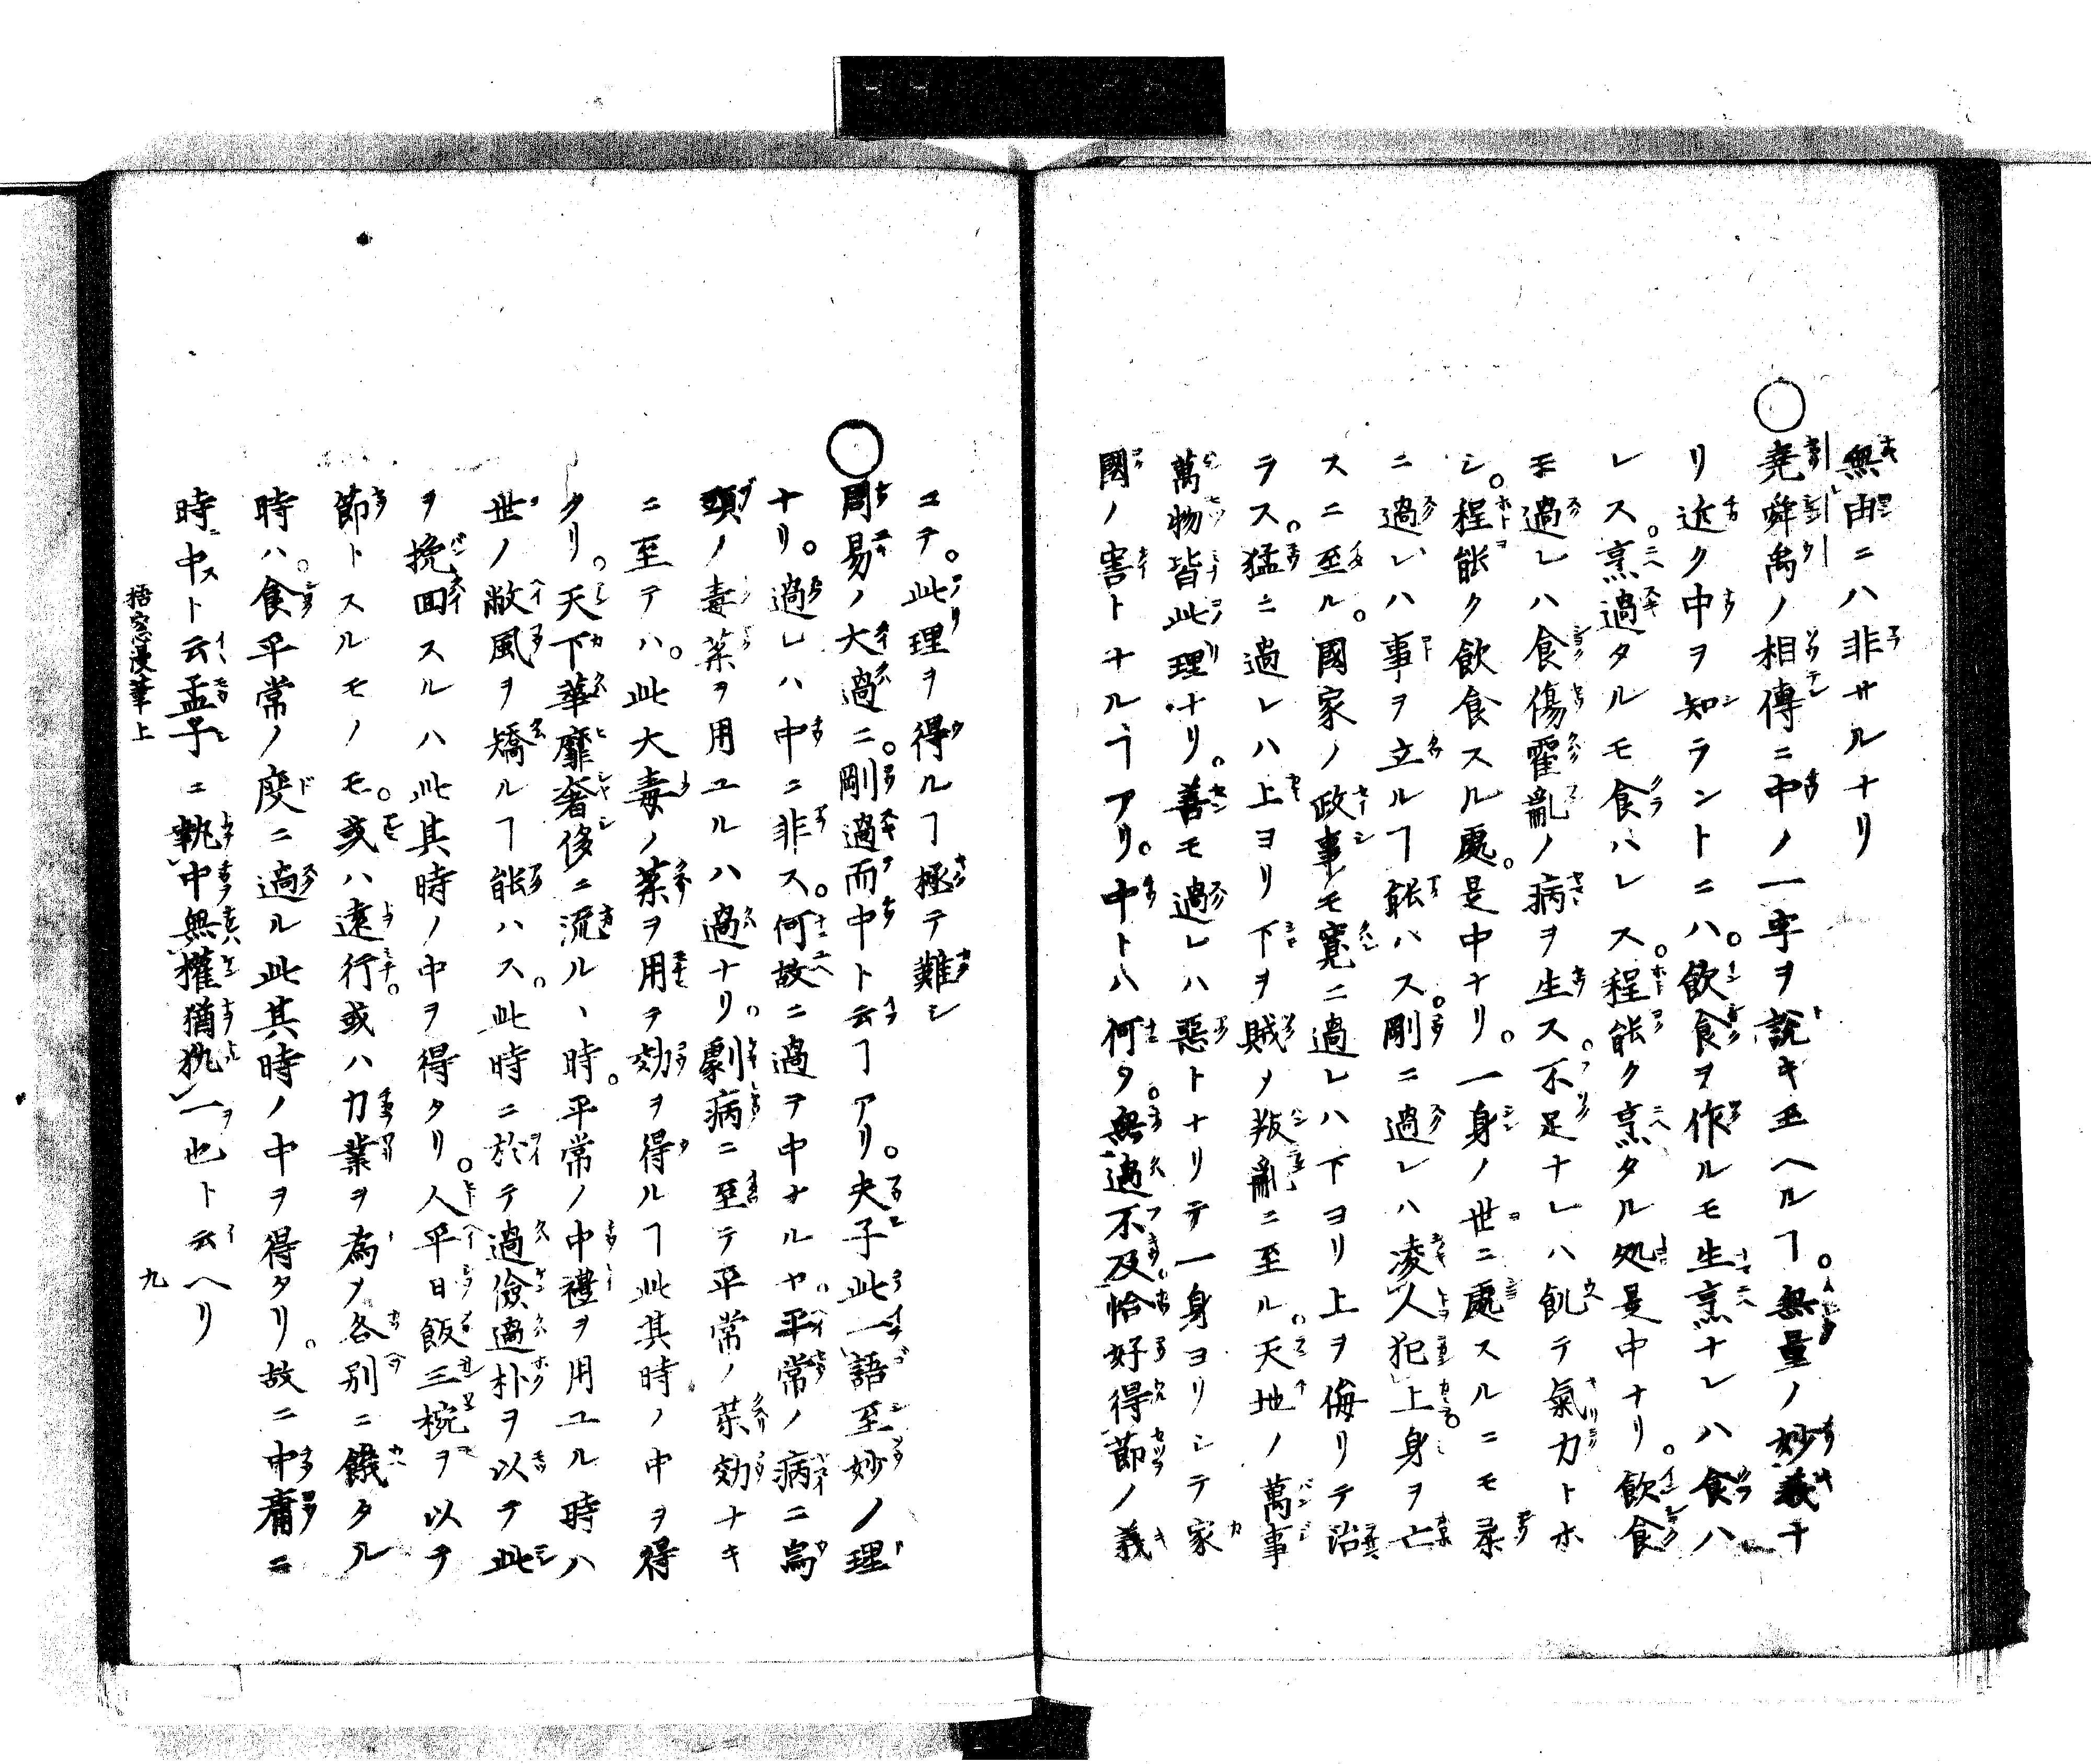 無由ニハ非サルナリ
○堯舜禹ノ相傳ニ中ノ一字ヲ說キ玉ヘルヿ。無量ノ妙義ナ
リ近ク中ヲ知ラントニハ。飲食ヲ作ルモ生烹ナレハ食ハ
レス。烹過タルモ食ハレス。程能ク烹タル処是中ナリ。飲食
モ過レハ食傷霍亂ノ病ヲ生ス。不足ナレハ飢テ氣力トホ
シ。程能ク飲食スル處。是中ナリ。一身ノ世ニ處スルニモ柔
ニ過レハ事ヲ立ルヿ能ハス。剛ニ過レハ凌人犯上身ヲ亡
スニ至ル。國家ノ政事モ寬ニ過レハ下ヨリ上ヲ侮リテ治
ラス。猛ニ過レハ上ヨリ下ヲ賊ノ叛亂ニ至ル。天地ノ萬事
萬物皆此理ナリ。善モ過レハ惡トナリテ一身ヨリシテ家
國ノ害トナルヿアリ。中トハ何タ。無過不及。恰好得節ノ義
ニテ。此理ヲ得ルヿ極テ難シ
○周易ノ大過ニ。剛過而中ト云ヿアリ。夫子此一語至妙ノ理
ナリ。過レハ中ニ非ス。何故ニ過ヲ中ナルヤ。平常ノ病ニ烏
頭ノ毒藥ヲ用ユルハ過ナリ。劇病ニ至テ平常ノ藥効ナキ
ニ至テハ。此大毒ノ藥ヲ用ヲ効ヲ得ルヿ此其時ノ中ヲ得
タリ。天下華靡奢侈ニ流ル、時。平常ノ中禮ヲ用ユル時ハ
世ノ敝風ヲ矯ルヿ能ハス。此時ニ於テ過儉過朴ヲ以テ此
ヲ挽回スルハ此其時ノ中ヲ得タリ。人平日飯三椀ヲ以テ
節トスルモノモ。或ハ遠行。或ハ力業ヲ為ノ各別ニ餓タル
時ハ。食平常ノ度ニ過ル此其時ノ中ヲ得タリ。故ニ中庸ニ
時中スト云孟子ニ執中無權猶執一也ト云ヘリ
梧窓漫筆上
九